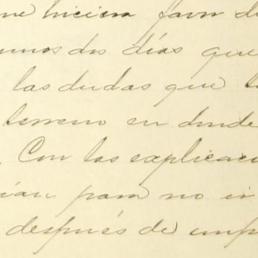 me hiciera favor d
unos dos días que
las dudas que t
terreno en donde
. Con las explicac
ían para no in
después de emp